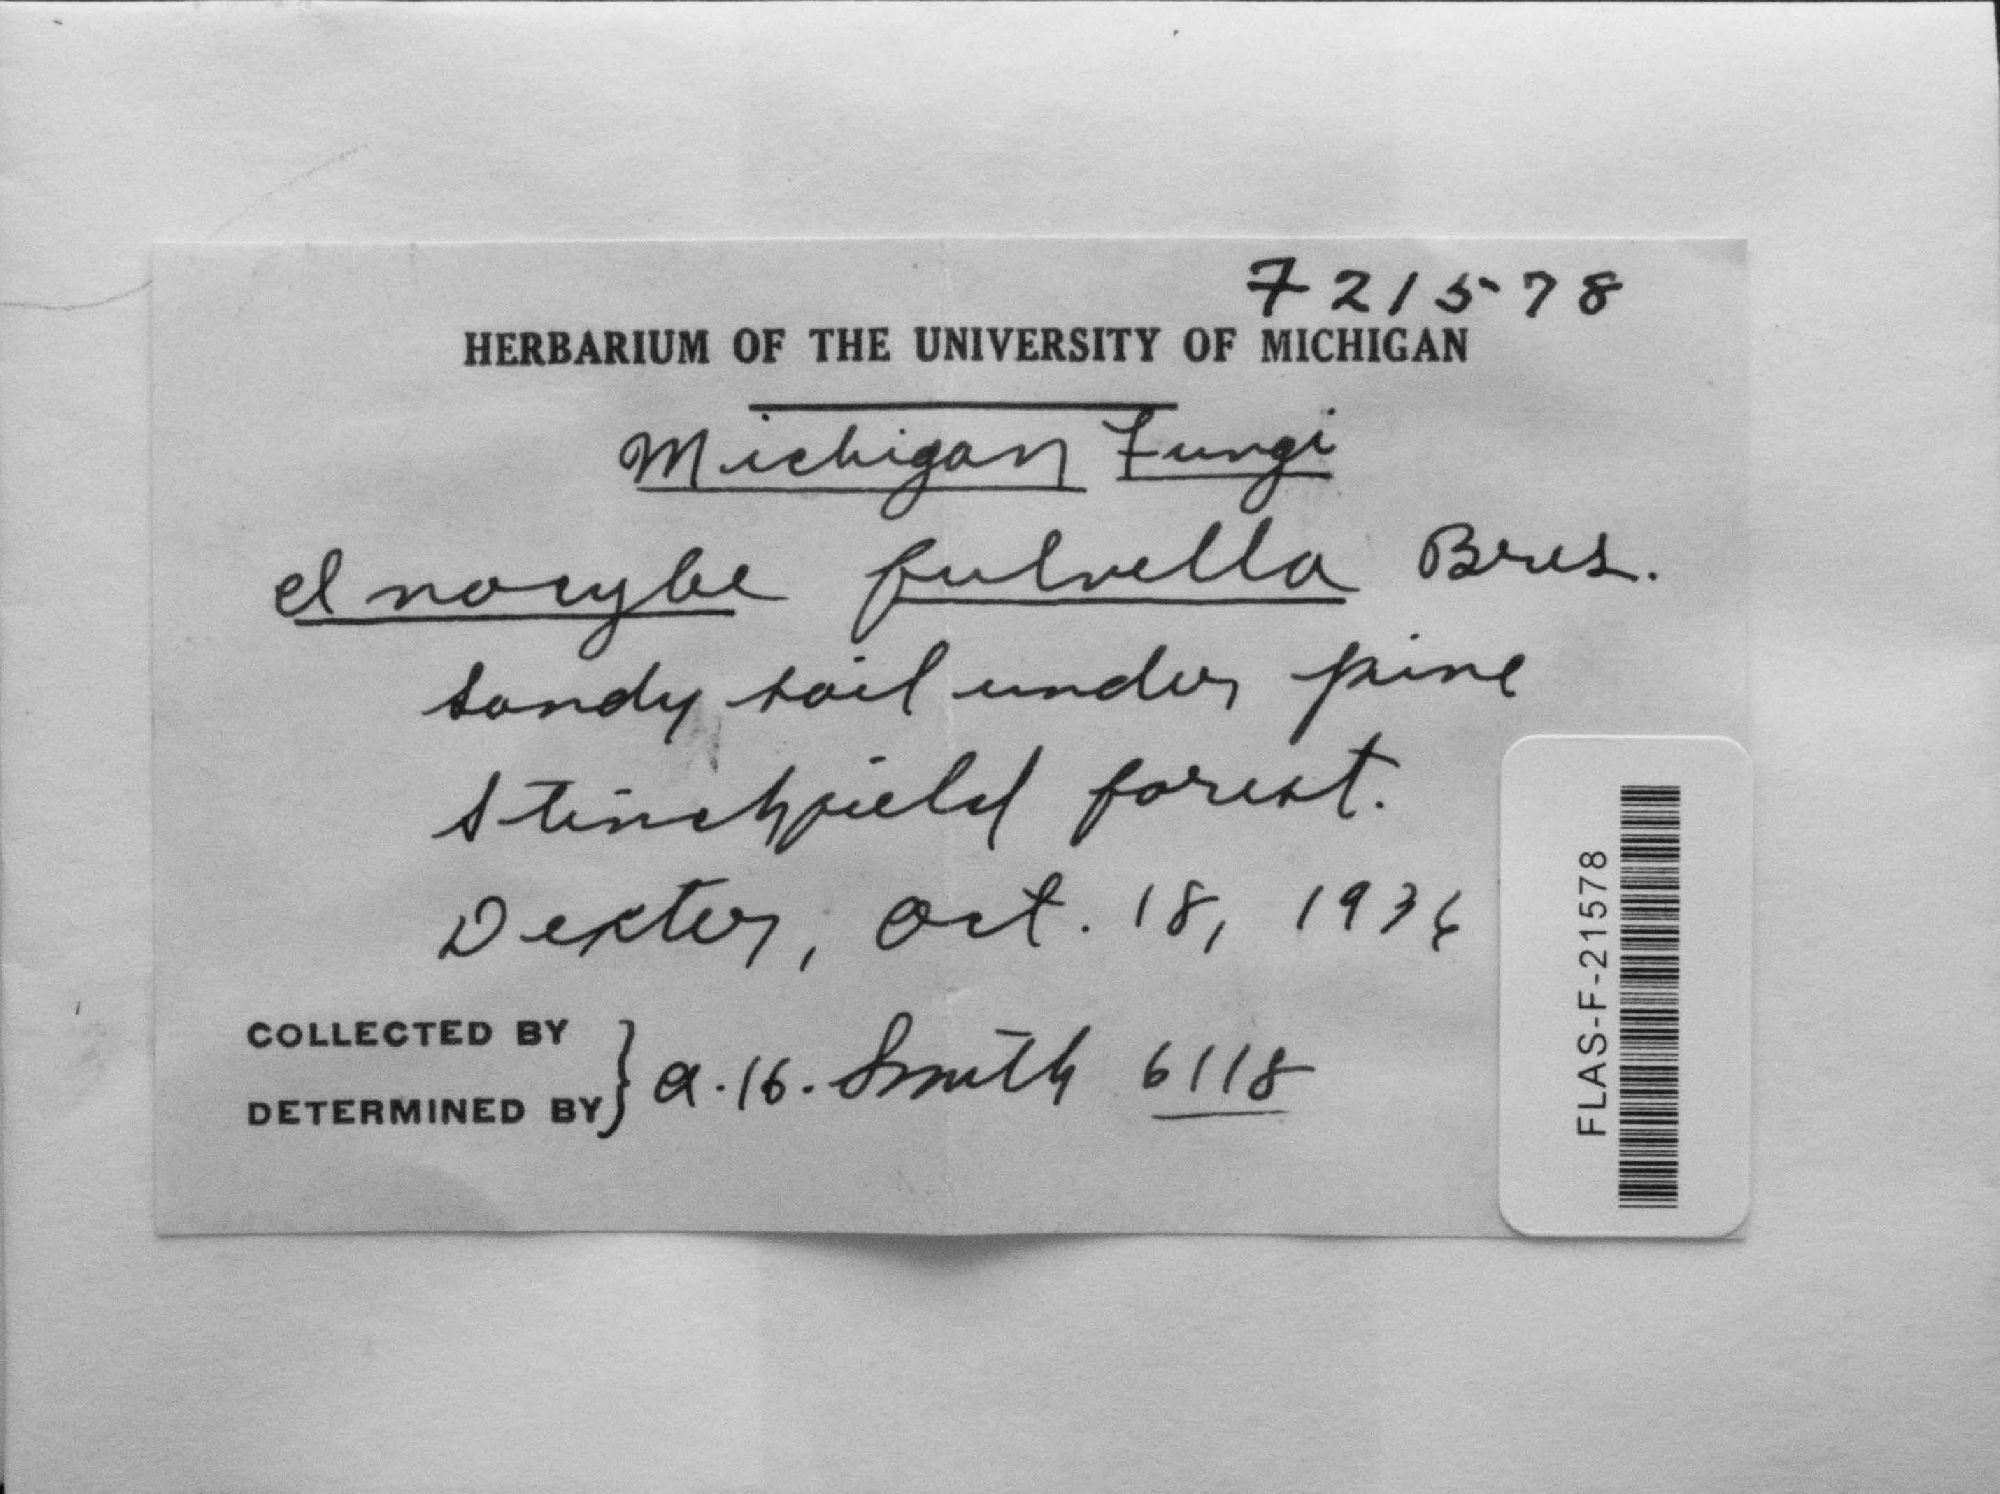 F21578
HERBARIUM OF THE UNIVERSITY OF MICHIGAN
Michigan Fungi
Inocybe fulvella Bres.
sandy soil under pine
Stinchfield forest.
Dexter, Oct. 18, 1936
COLLECTED BY
DETERMINED BY } A. H. Smith 6118
FLAS-F-21578